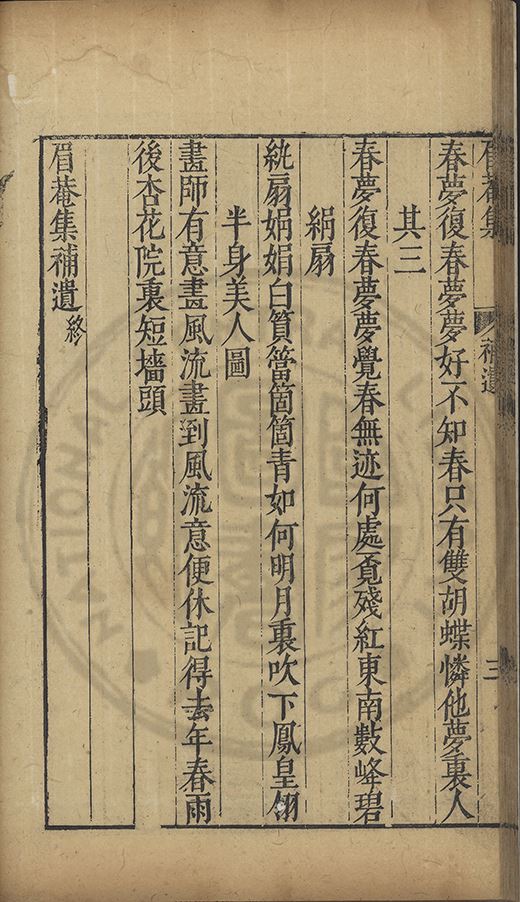 眉菴集 補遺 三
春夢復春夢夢好不知春只有雙胡蝶憐他夢裏人
其三
春夢復春夢夢覺春無迹何處覓殘紅東南數峰碧
絹扇
紈扇娟娟白篔簹箇箇青如何明月裏吹下鳳皇翎
半身美人圖
畫師有意畫風流畫到風流意便休記得去年春雨
後杏花院裏短墻頭
眉菴集補遺終